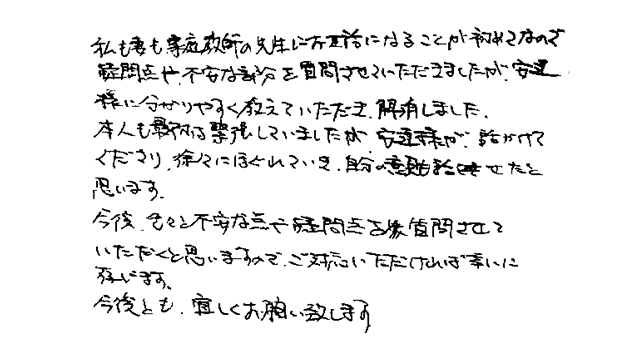 私も妻も家庭教師の先生にお世話になることが初めてなので
疑問点や、不安な部分を質問させていただきましたが、安達
様に分かりやすく教えていただき、解消しました。
本人も最初は緊張していましたが 安達様が、話かけて
くださり、徐々にほぐれていき、自分の意見も話せたと
思います。
今後、色々と不安な点や疑問点を質問させて
いただくと思いますので、ご対応いただければ幸いに
存じます。
今後とも、宜しくお願い致します